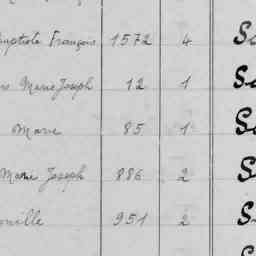 Baptiste François 1572 4 Sa
Marie Joseph 12 1 Sa
Marie 85 1 Sa
Marie Joseph 886 2 S
951 2 S